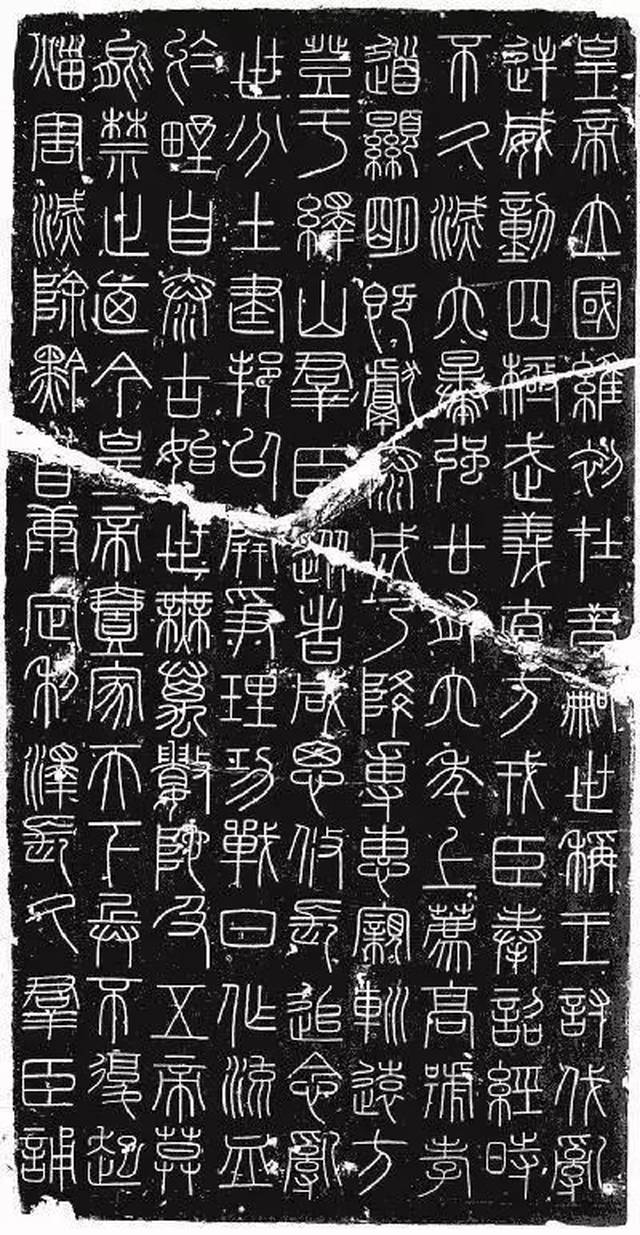 皇帝立國維初在昔嗣世稱王討伐亂
逆威動四極武義直方戎臣奉詔經時
不久滅六暴強廿有六年上薦高號孝
道顯明既獻泰成乃降專惠親巡遠方
登于繹山羣臣從者咸思攸長追念亂
世分土建邦以開爭理功戰日作流血
於野自泰古始世無萬數陀及五帝莫
能禁止迺今皇帝壹家天下兵不復起
災害滅除黔首康定利澤長久羣臣誦